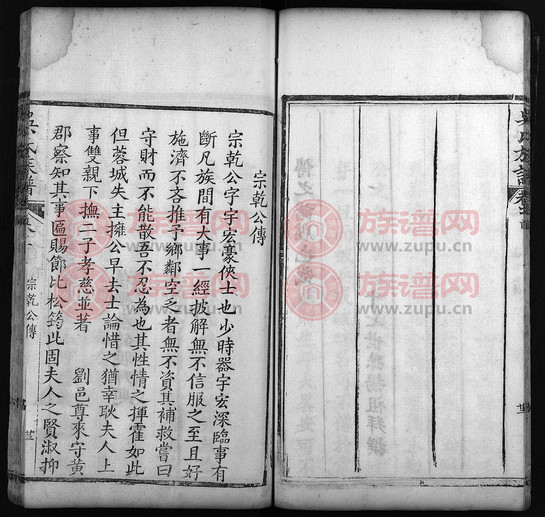 宗乾公傳
宗乾公字宇宏豪俠士也少時器宇宏深臨事有
斷凡族間有大事一經披解無不信服之至且好
施濟不吝推予鄉鄰空乏者無不資其補救嘗曰
守財而不能散吾不忍為也其性情之揮霍如此
但蓉城失主擁公早去士論惜之猶幸耿夫人上
事雙親下撫二子孝慈並著
劉邑尊來守黃
郡察知其事匾賜節比松筠此固夫人之賢淑抑
吳氏族譜
宗乾公傳
族谱网
www.zupu.cn
族谱网
www.zupu.cn
族谱网
www.zupu.cn
族谱网
www.zupu.cn